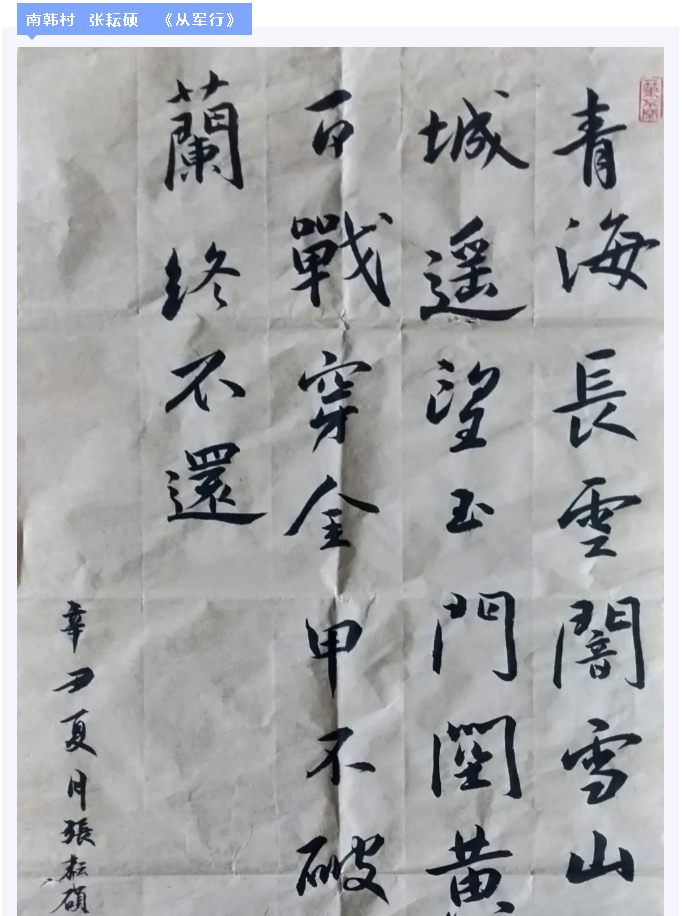 南韩村 张耘硕 《从军行》
青海長雲闇雪山
城遥望玉門關黄
百戰穿金甲不破
蘭終不還
辛丑夏月張耘碩